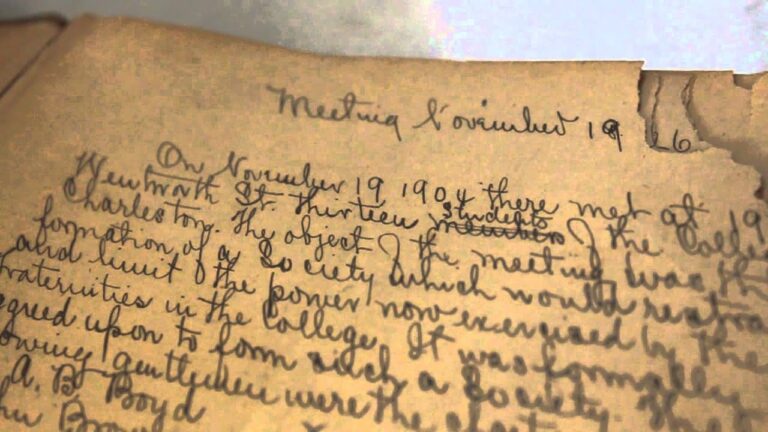 Meeting November 19
On November 19 1904 there met at 19
Wentworth St. thirteen members students of the Colle
Charleston. The object of the meeting was the
formation of a Society which would restra
and limit the power now exercised by the
fraternities in the College. It was formally
greed upon to form such a Society. The
owing gentlemen were the
A. B. Boyd
hn Brown